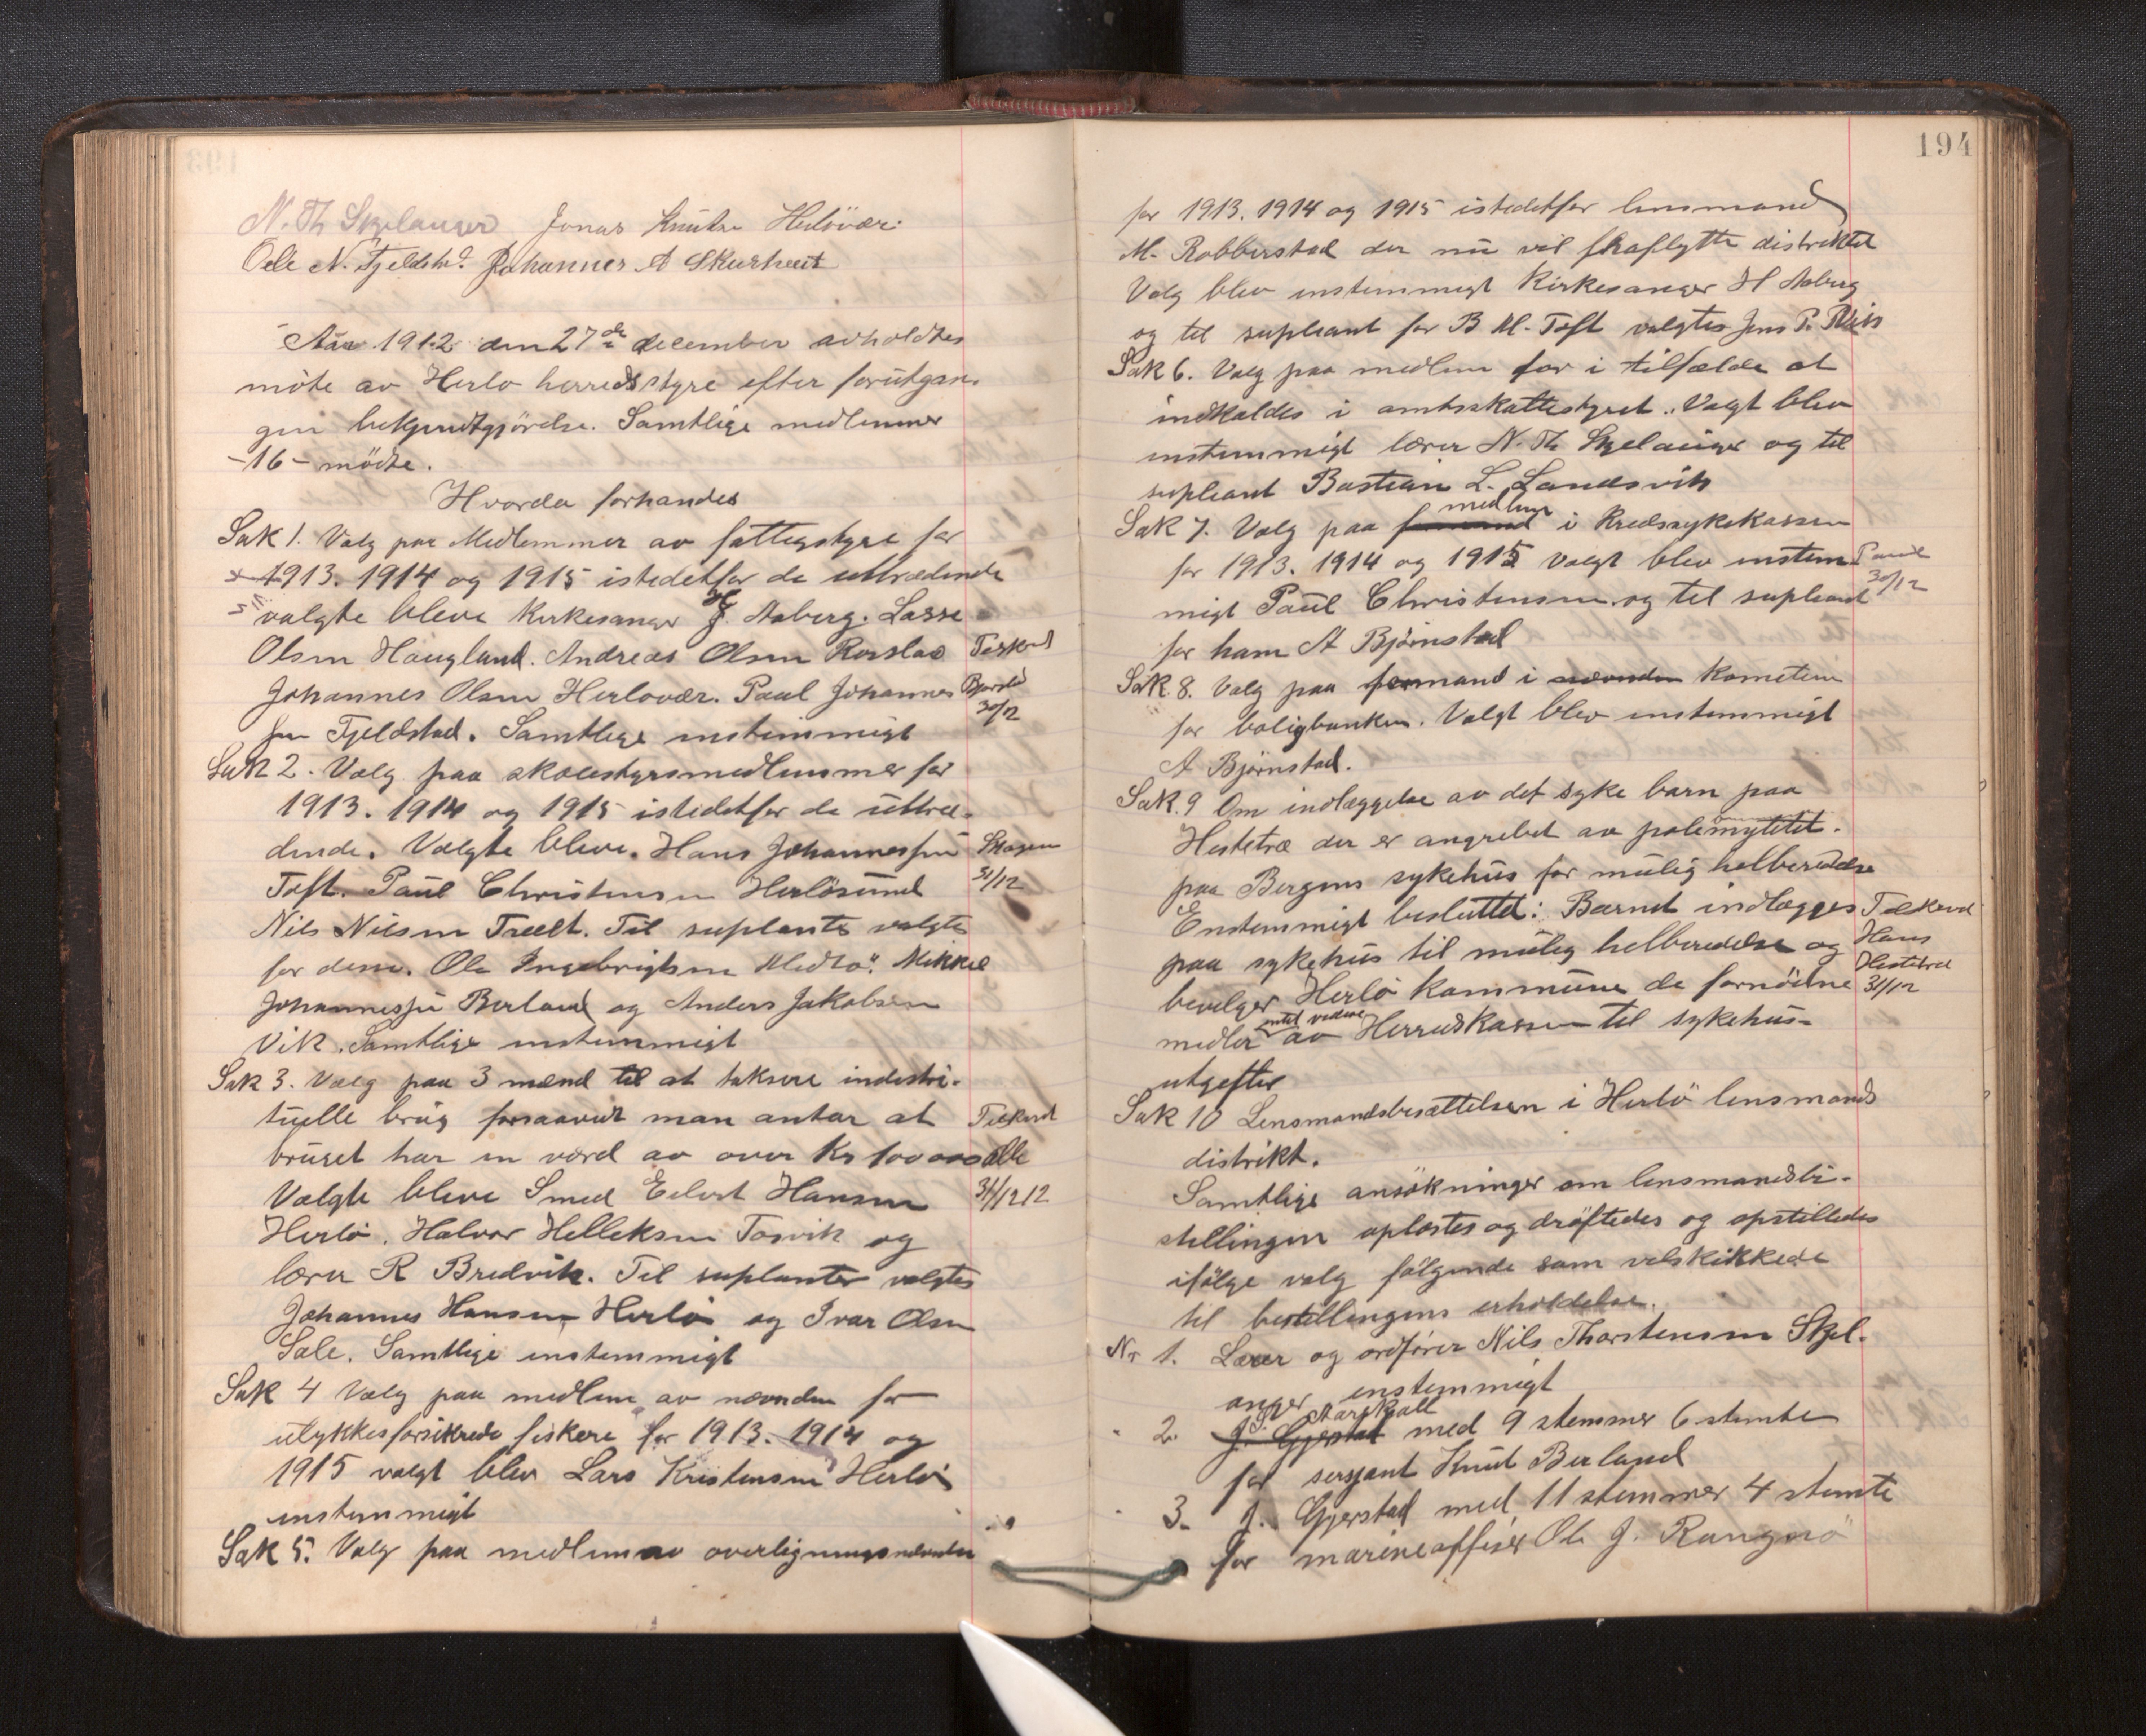 N. Th Skjelanger Jonas Knutsen Herlövær.
Ole N. Fjeldstd. Johannes A Skurtveit
Aar 1912 den 27de december avholdtes
möte av Herlö herredsstyre efter forutgan-
gen bekjendtgjörelse. Samtlige medlemmer
-16- mödte.
Hvorda forhandes
Sak 1. Valg paa Medlemmer av fattigstyre for
1913. 1914 og 1915 istedetfor de uttrædende
valgte bleve kirkesanger H. Aaberg. Lasse
Olsen Haugland. Andreas Olsen Rosslao
Johannes Olsen Herlovær. Paul Johannes
sen Fjeldstad. Samtlige enstemmigt
Bjørstd
30/12
Sak 2. Valg paa skolestyrsmedlemmer for
1913. 1914 og 1915 istedetfor de uttræ-
dende. Valgte bleve. Hans Johannessen
Toft. Paul Christensen Herlösund
Skogen
31/12
Nils Nilsen Træet. Til suplanter valgte
for dem. Ole Ingebrigtsen Medtö. Mikkel
Johannessen Berland og Anders Jakobsen
Vik. Samtlige enstemmigt
Sak 3. Valg paa 3 mænd til at taksere indestri-
tuelle brug forsaavidt man antar at
bruget har en værd av over Kr 100000
Tilkjend
alle
31/12 12
Valgte bleve Smed Eilert Hansen
Herlö. Halvor Helleksen Tosvik og
lærer R Bredvik. Til suplanter valgtes
Johannes Hansen Herlö og Ivar Olsen
Sale. Samtlige enstemmigt
Sak 4 Valg paa medlem av nævnden for
ulykkesforsikrede fiskere for 1913. 1914 og
1915 valgt blev Lars Kristensen Herlö
enstemmigt
Sak 5. Valg paa medlem av overligningsnævnden
194
for 1913. 1914 og 1915 istedetfor lensmand
M. Robberstad der nu vil fraflytte distriktet
Valg blev enstemmigt Kirkesanger H Aaberg
og til supleant for B M. Toft valgtes Jens P.
Sak 6. Valg paa medlem for i tilfælde at
indkaldes i amtsskattestyret. Valgt blev
enstemmigt lærer N. Th Skjelanger og til
supleant Bastian L. Landsvik
Sak 7. Valg paa formand medlem i Kredssykekassen
for 1913. 1914 og 1915 Valgt blev enstem
migt Paul Christensen og til supleant
for ham A Bjørnstad
Paul
30/12
Sak. 8. Valg paa formand i nævnden Kometeen
for boligbanken. Valgt blev enstemmigt
A Bjørnstad.
Sak. 9 Om indlæggelse av det syke barn paa
Hestetræ der er angrebet av poliomytetet.
paa Bergens sykehus for mulig helberedelse
Enstemmigt besluttet: Barnet indlægges
paa sykehus til mulig helberedelse og
bevilger Herlö kommune de fornödne
midler indtil videre av Herredskassen til sykehus-
utgefter
Tilkjend
Hans
Hestetræ
31/12
Sak 10 Lensmandsbesættelsen i Herlö lensmands
distrikt.
Samtlige ansökninger om lensmandsbe-
stillingen oplæstes og dröftedes og opstilledes
ifölge valg fölgende som velskikkede
til bestillingens erholdelse.
Nr 1. Lærer og ordförer Nils Thorstensen Skjel-
anger enstemmigt
" 2. J. Gjerstad S. Aarskall med 9 stemmer 6 stemte
for sersjant Knut Berland
" 3. J. Gjerstad med 11 stemmer 4 stemte
for marineoffiser Ole J. Rangnö